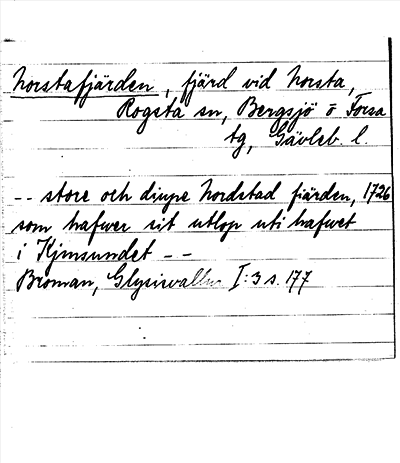 Norstafjärden, fjärd vid Norsta,
Rogsta sn, Bergsjö o Forsa
tg, Gävleb. l.
-- store och diupe Nordstad fiärden, 1726
som hafwer sit utlop uti hafwet
i Hjmsundet --
Broman, Glysisvallur I:3 s. 177